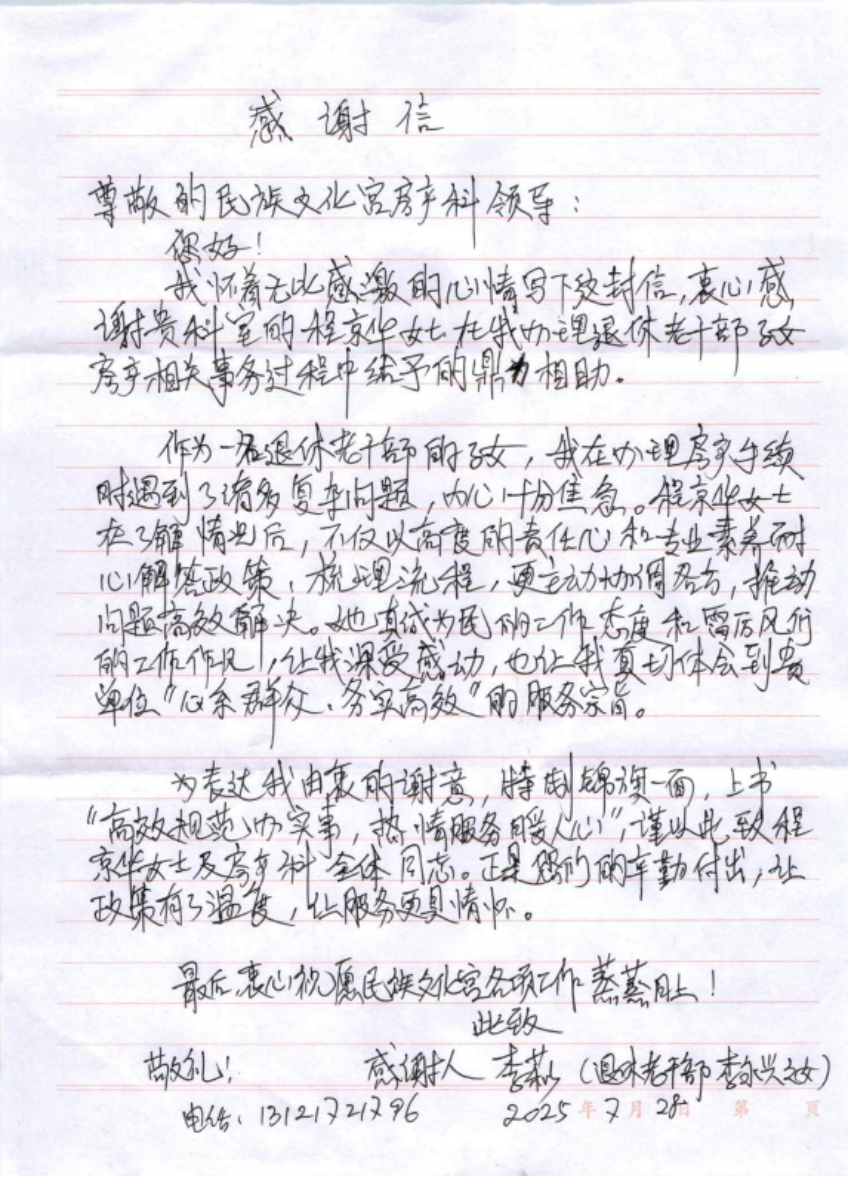 感谢信
尊敬的民族文化宫房产科领导：
您好！
我怀着无比感激的心情写下这封信，衷心感
谢贵科室的程京华女士在我办理退休老干部子女
房产相关事务过程中给予的鼎力相助。
作为一名退休老干部的子女，我在办理房产手续
时遇到了诸多复杂问题，内心十分焦急。程京华女士
在了解情况后，不仅以高度的责任心和专业素养耐
心解答政策、梳理流程，更主动协调各方，推动
问题高效解决。她真诚为民的工作态度和雷厉风行
的工作作风，让我深受感动，也让我真切体会到贵
单位“心系群众、务实高效”的服务宗旨。
为表达我由衷的谢意，特制锦旗一面，上书
“高效规范办实事，热情服务暖人心”，谨以此致程
京华女士及房产科全体同志。正是您们的辛勤付出，让
政策有了温度，让服务更具情怀。
最后，衷心祝愿民族文化宫各项工作蒸蒸日上！
此致
敬礼！ 感谢人 李莉（退休老干部李永兴之女）
电话：13121721796 2025年7月28日 第 页